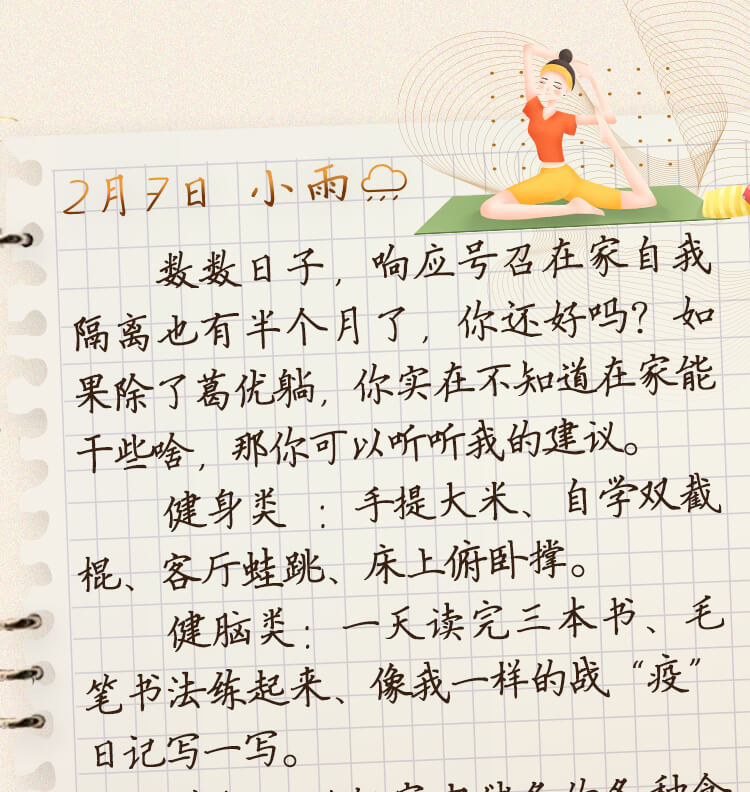 2月7日 小雨
数数日子，响应号召在家自我
隔离也有半个月了，你还好吗？如
果除了葛优躺，你实在不知道在家能
干些啥，那你可以听听我的建议。
健身类：手提大米、自学双截
棍、客厅蛙跳、床上俯卧撑。
健脑类：一天读完三本书、毛
笔书法练起来、像我一样的战“疫”
日记写一写。